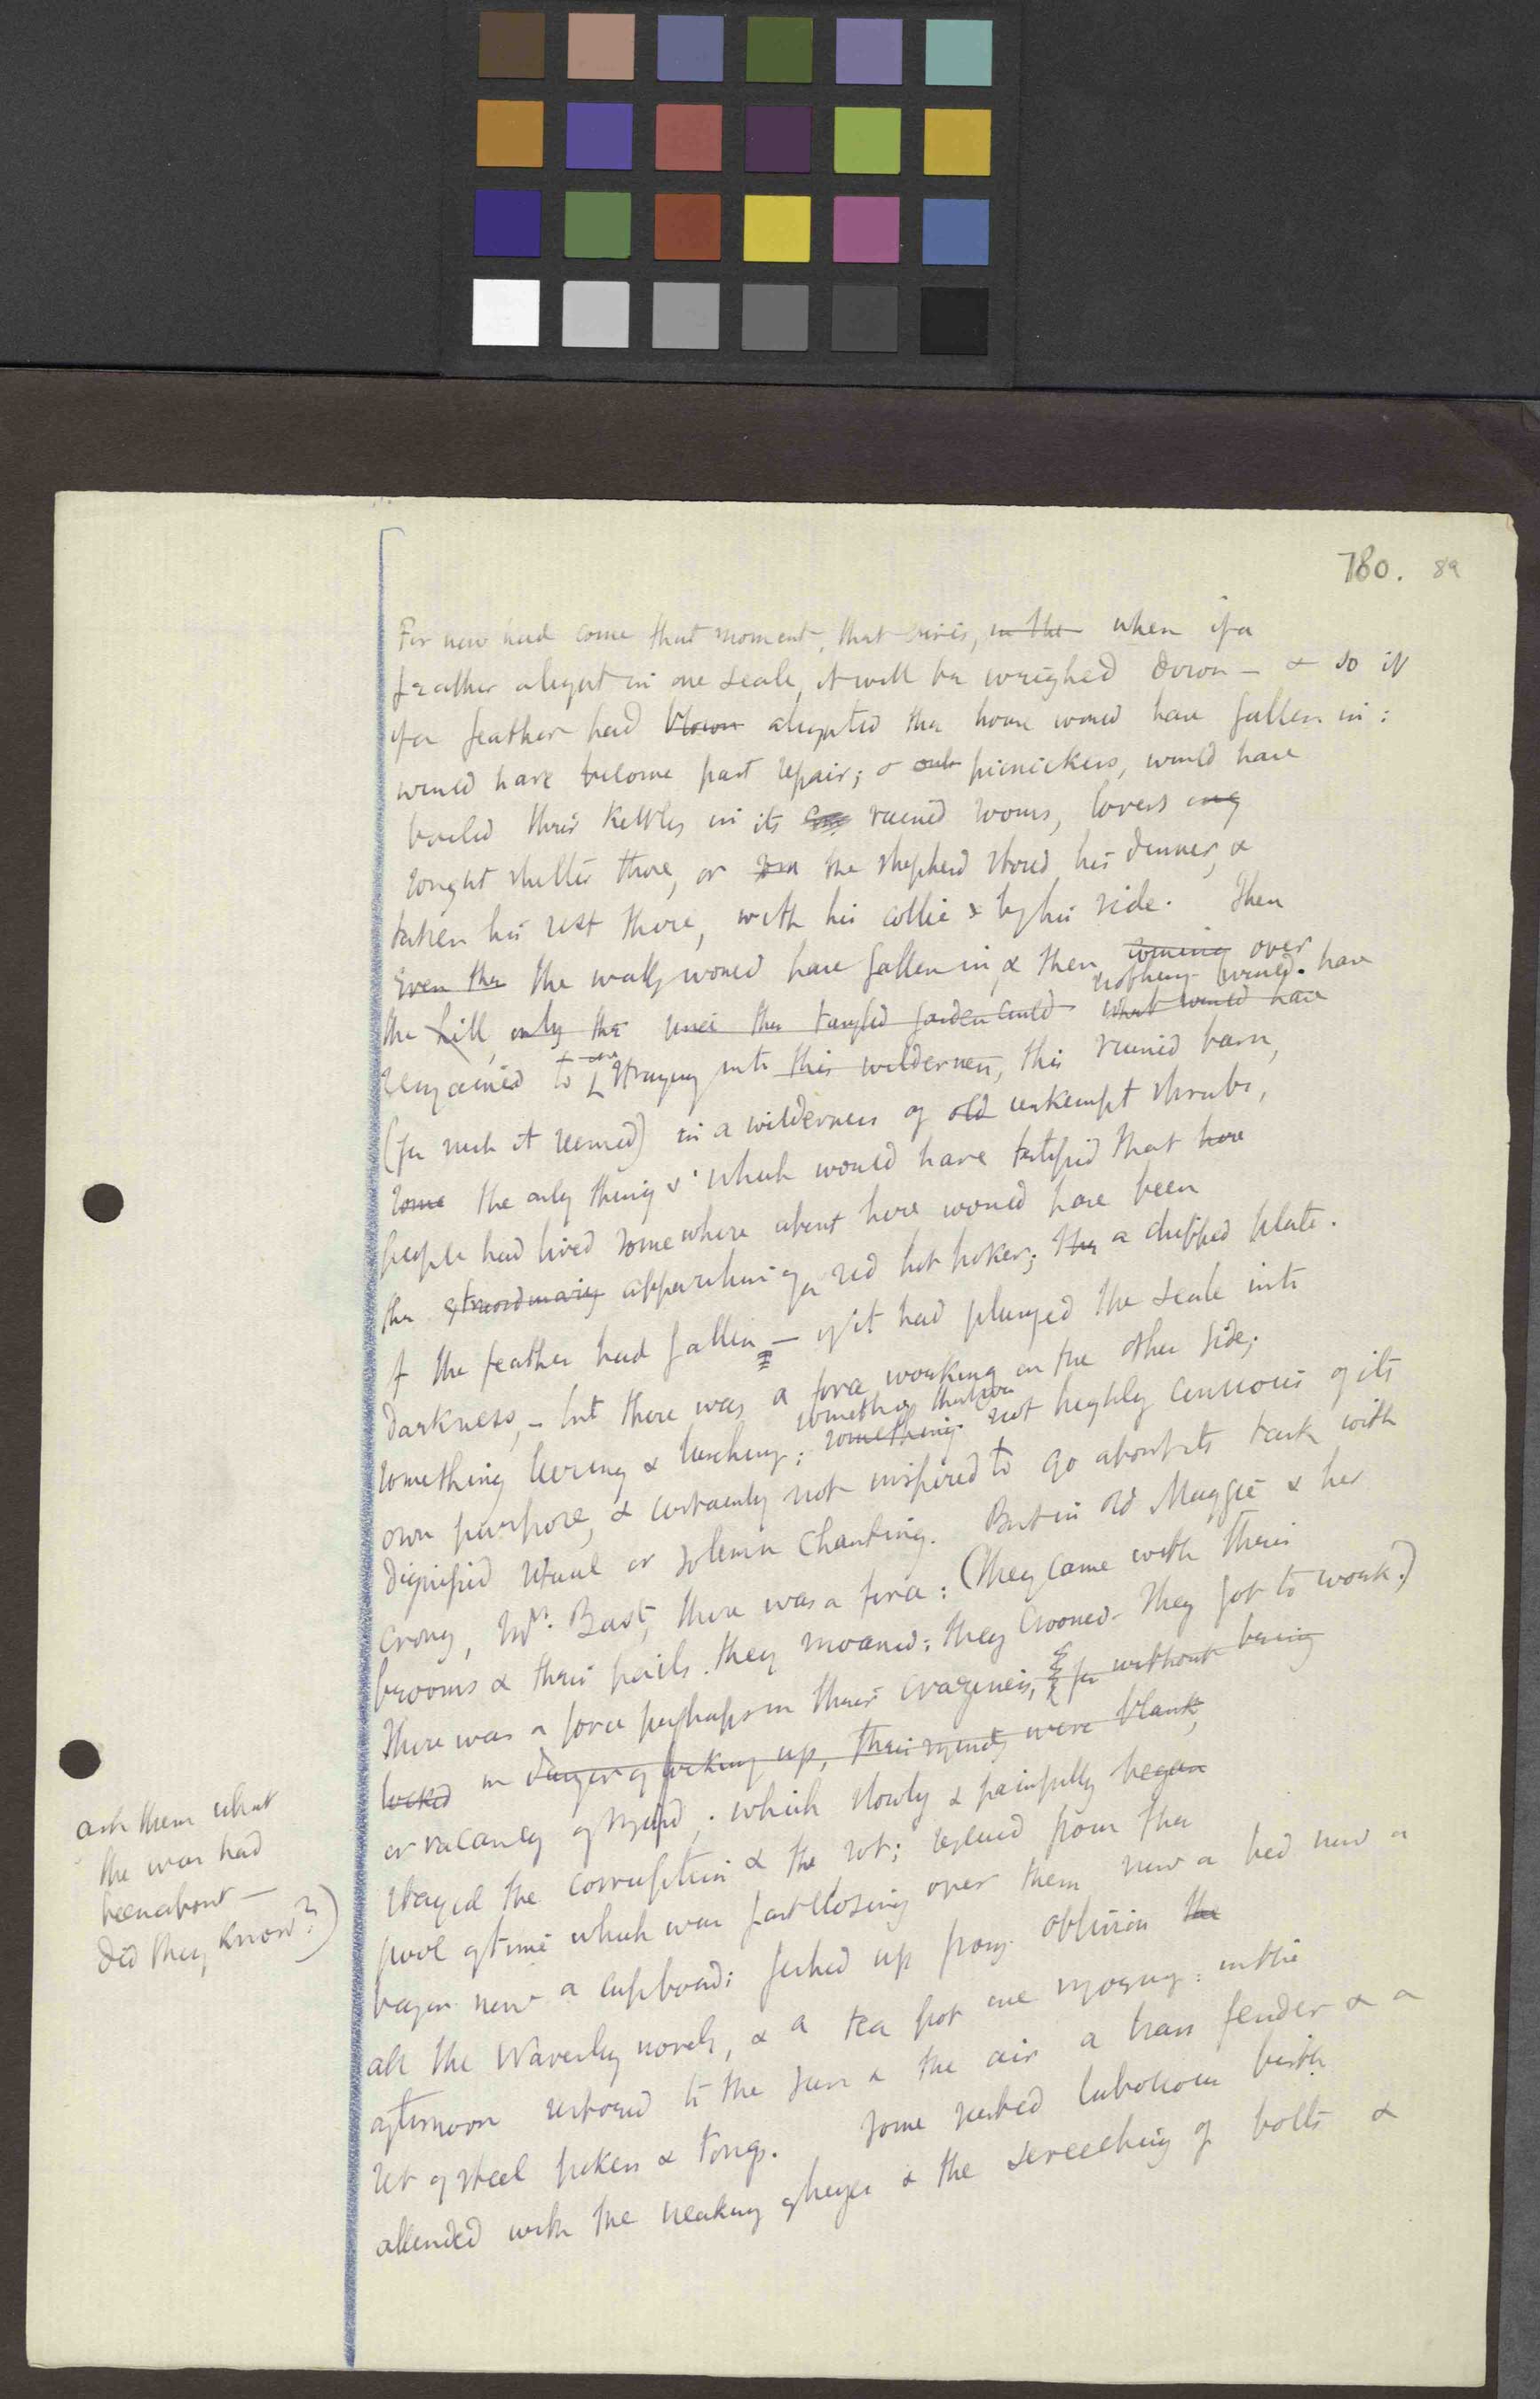 780. 89
For now had come that moment, that crisis, in the when if a
feather alight in one scale, it will be weighed down – & so if
if a feather had blown alighted the house would have fallen in:
would have become past repair; & picnickers, would have
boiled their kettles in its ruined rooms, lovers
sought shelter there, or the shepherd stored his dinner, &
taken his rest there, with his collie & by his side. Then
Even the the walls would have fallen in, & then coming over
the hill, only the the tangled garden could what would have
nothing would have
remained to one straying into this wilderness, this ruined barn,
(for such it seemed) in a wilderness of old unkempt shrubs,
some the only things which would have testified that here
people had lived somewhere about here would have been
the extraordinary apparition of a red hot poker; the a chipped plate.
If the feather had fallen – if it had plunged the scale into
darkness, – but there was a force working on the other side;
something leering & lurching; something not highly conscious of its
something that was
own purpose, & certainly not inspired to go about its task with
dignified ritual or solemn chanting. But in old Maggie & her
crony, Mrs. Bast, there was a force: (They came with their
brooms & their pails. they moaned: they crooned. They got to work.)
There was a force perhaps in their craziness, & for without being
locked in danger of locking up, their minds were blank,
or vacancy of mind; which slowly & painfully began
stayed the corruption & the rot; rescued from the
pool of time which was fast closing over them now a bed now a
basin now a cupboard: fetched up from oblivion the
all the Waverley novels, & a tea pot one morning: in the
afternoon restored to the sun & the air a brass fender & a
set of steel pokers & tongs. Some rusted laborious birth
attended with the creaking of hinges & the screeching of bolts &
ask them what
the war had
been about –
Did they know?)